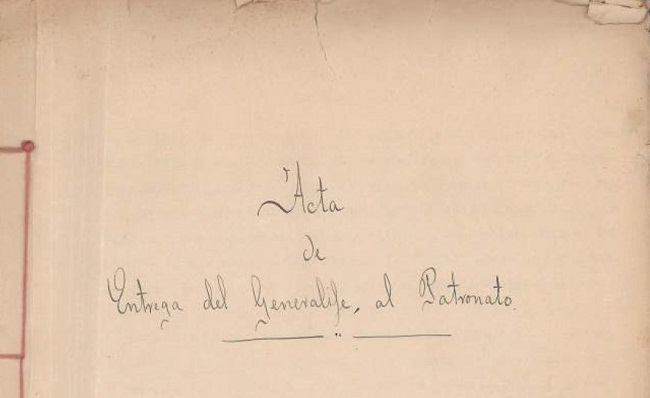 Acta
de
Entrega del Generalife, al Patronato.